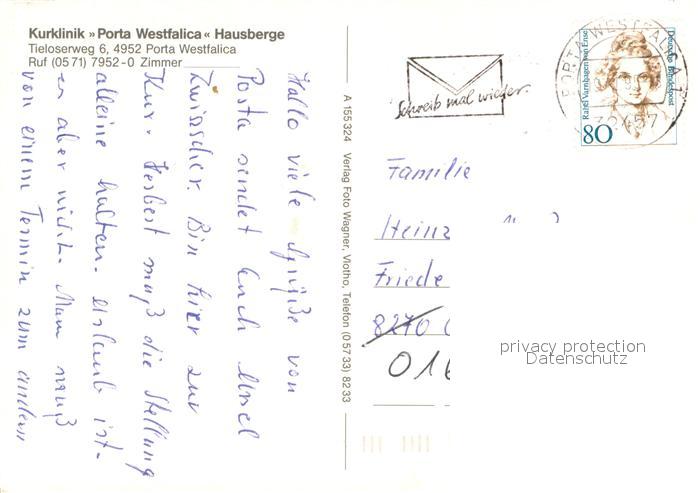 Kurklinik »Porta Westfalica« Hausberge
Tieloserweg 6, 4952 Porta Westfalica
Ruf (05 71) 7952-0 Zimmer
Hallo viele Grüße von
Porta sendet Euch
Bin hier zur
Kur. Herbert muß die Stellung
alleine halten. Urlaub ist
es aber nicht. Man muß
von einem Termin zum andern
A 155 324 Verlag Foto Wagner, Vlotho, Telefon (0 57 33) 82 33
Schreib mal wieder
PORTA WESTFALICA 1
32457
Rahel Varnhagen von Ense
Deutsche Bundespost
80
Familie
Heinz
Friede
8270
016
privacy protection
Datenschutz